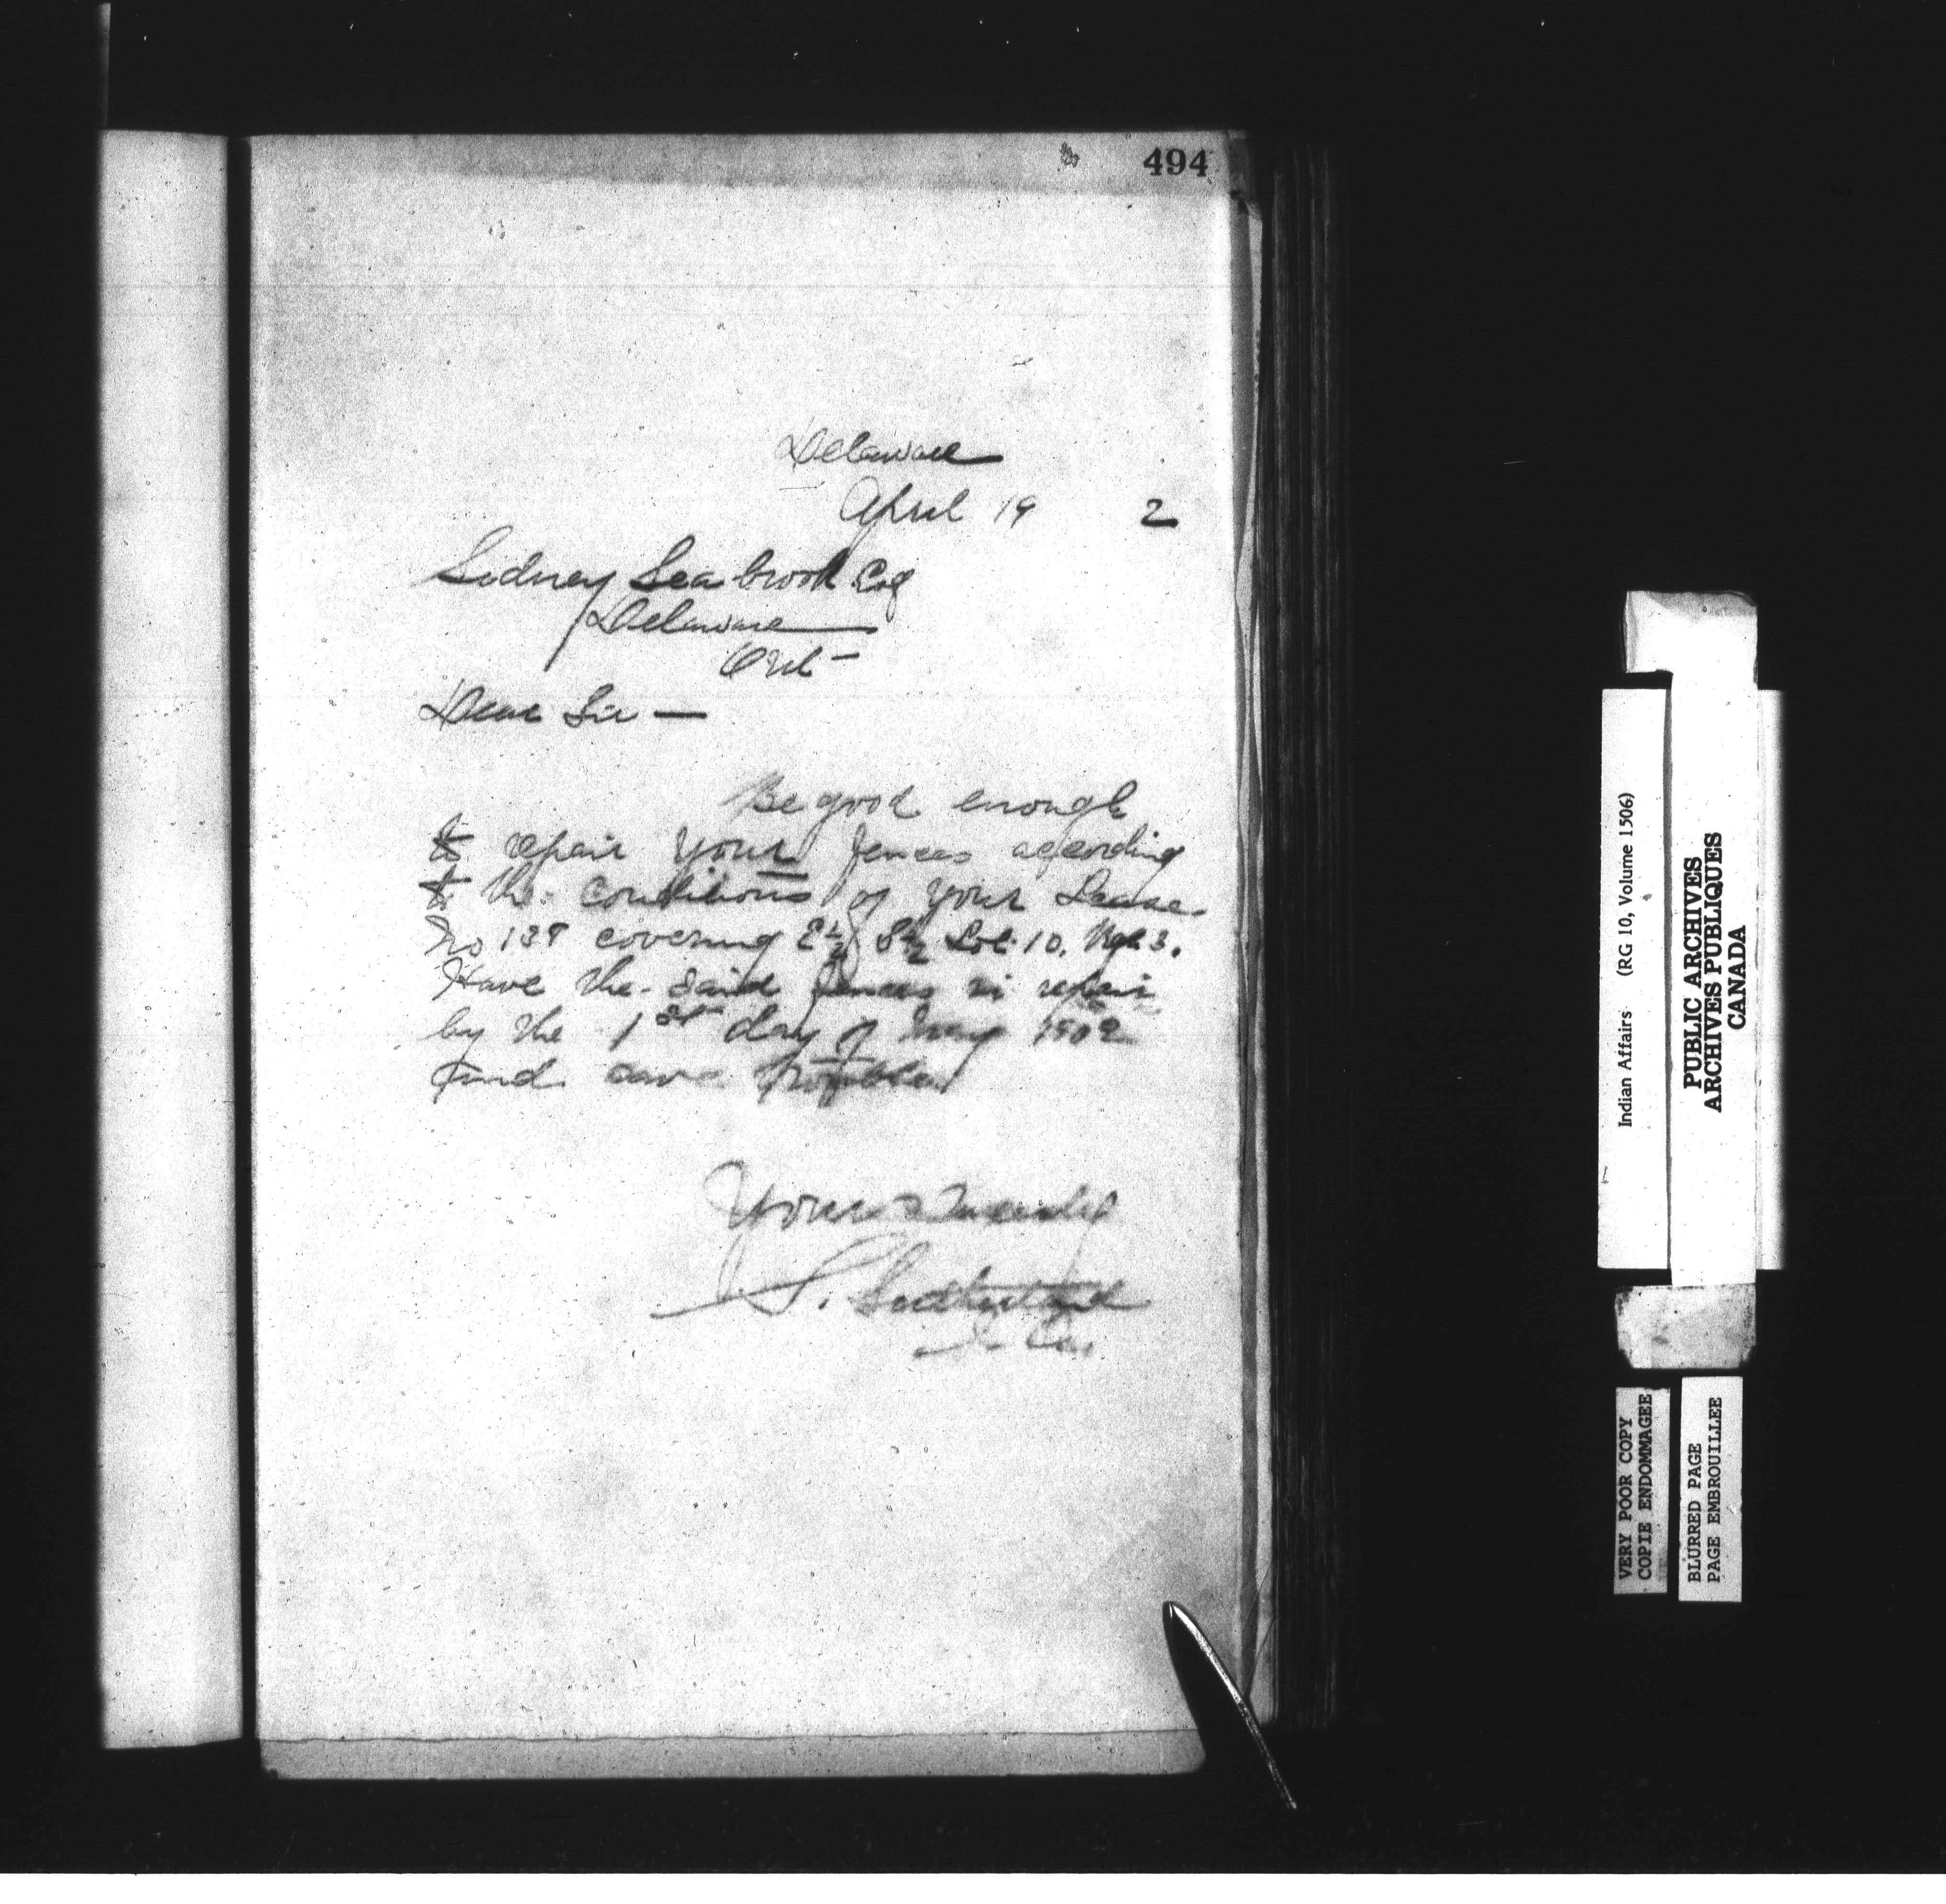 494
Delaware
April 19 2
Sidney Seabrook Esq
Delaware
Ont-
Dear Sir —
Be good enough
to repair your fences according
to the conditions of your Lease
No 139 covering E½ S½ Lot 10, Rge 3.
Have the said fences in repair
by the 1st day of May 1902
and save trouble
Yours
S. Sutherland
Indian Affairs (RG 10, Volume 1506)
PUBLIC ARCHIVES
ARCHIVES PUBLIQUES
CANADA
VERY POOR COPY
COPIE ENDOMMAGEE
BLURRED PAGE
PAGE EMBROUILLEE